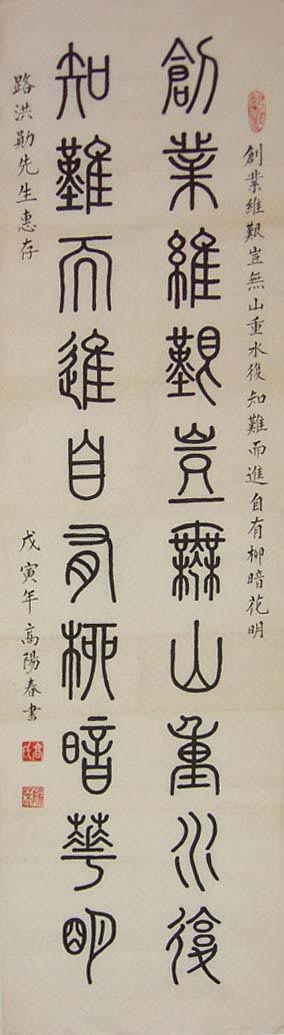 創業維艱豈無山重水復知難而進自有柳暗花明
創業維艱豈無山重水復
知難而進自有柳暗華明
路洪勛先生惠存
戊寅年高陽春書